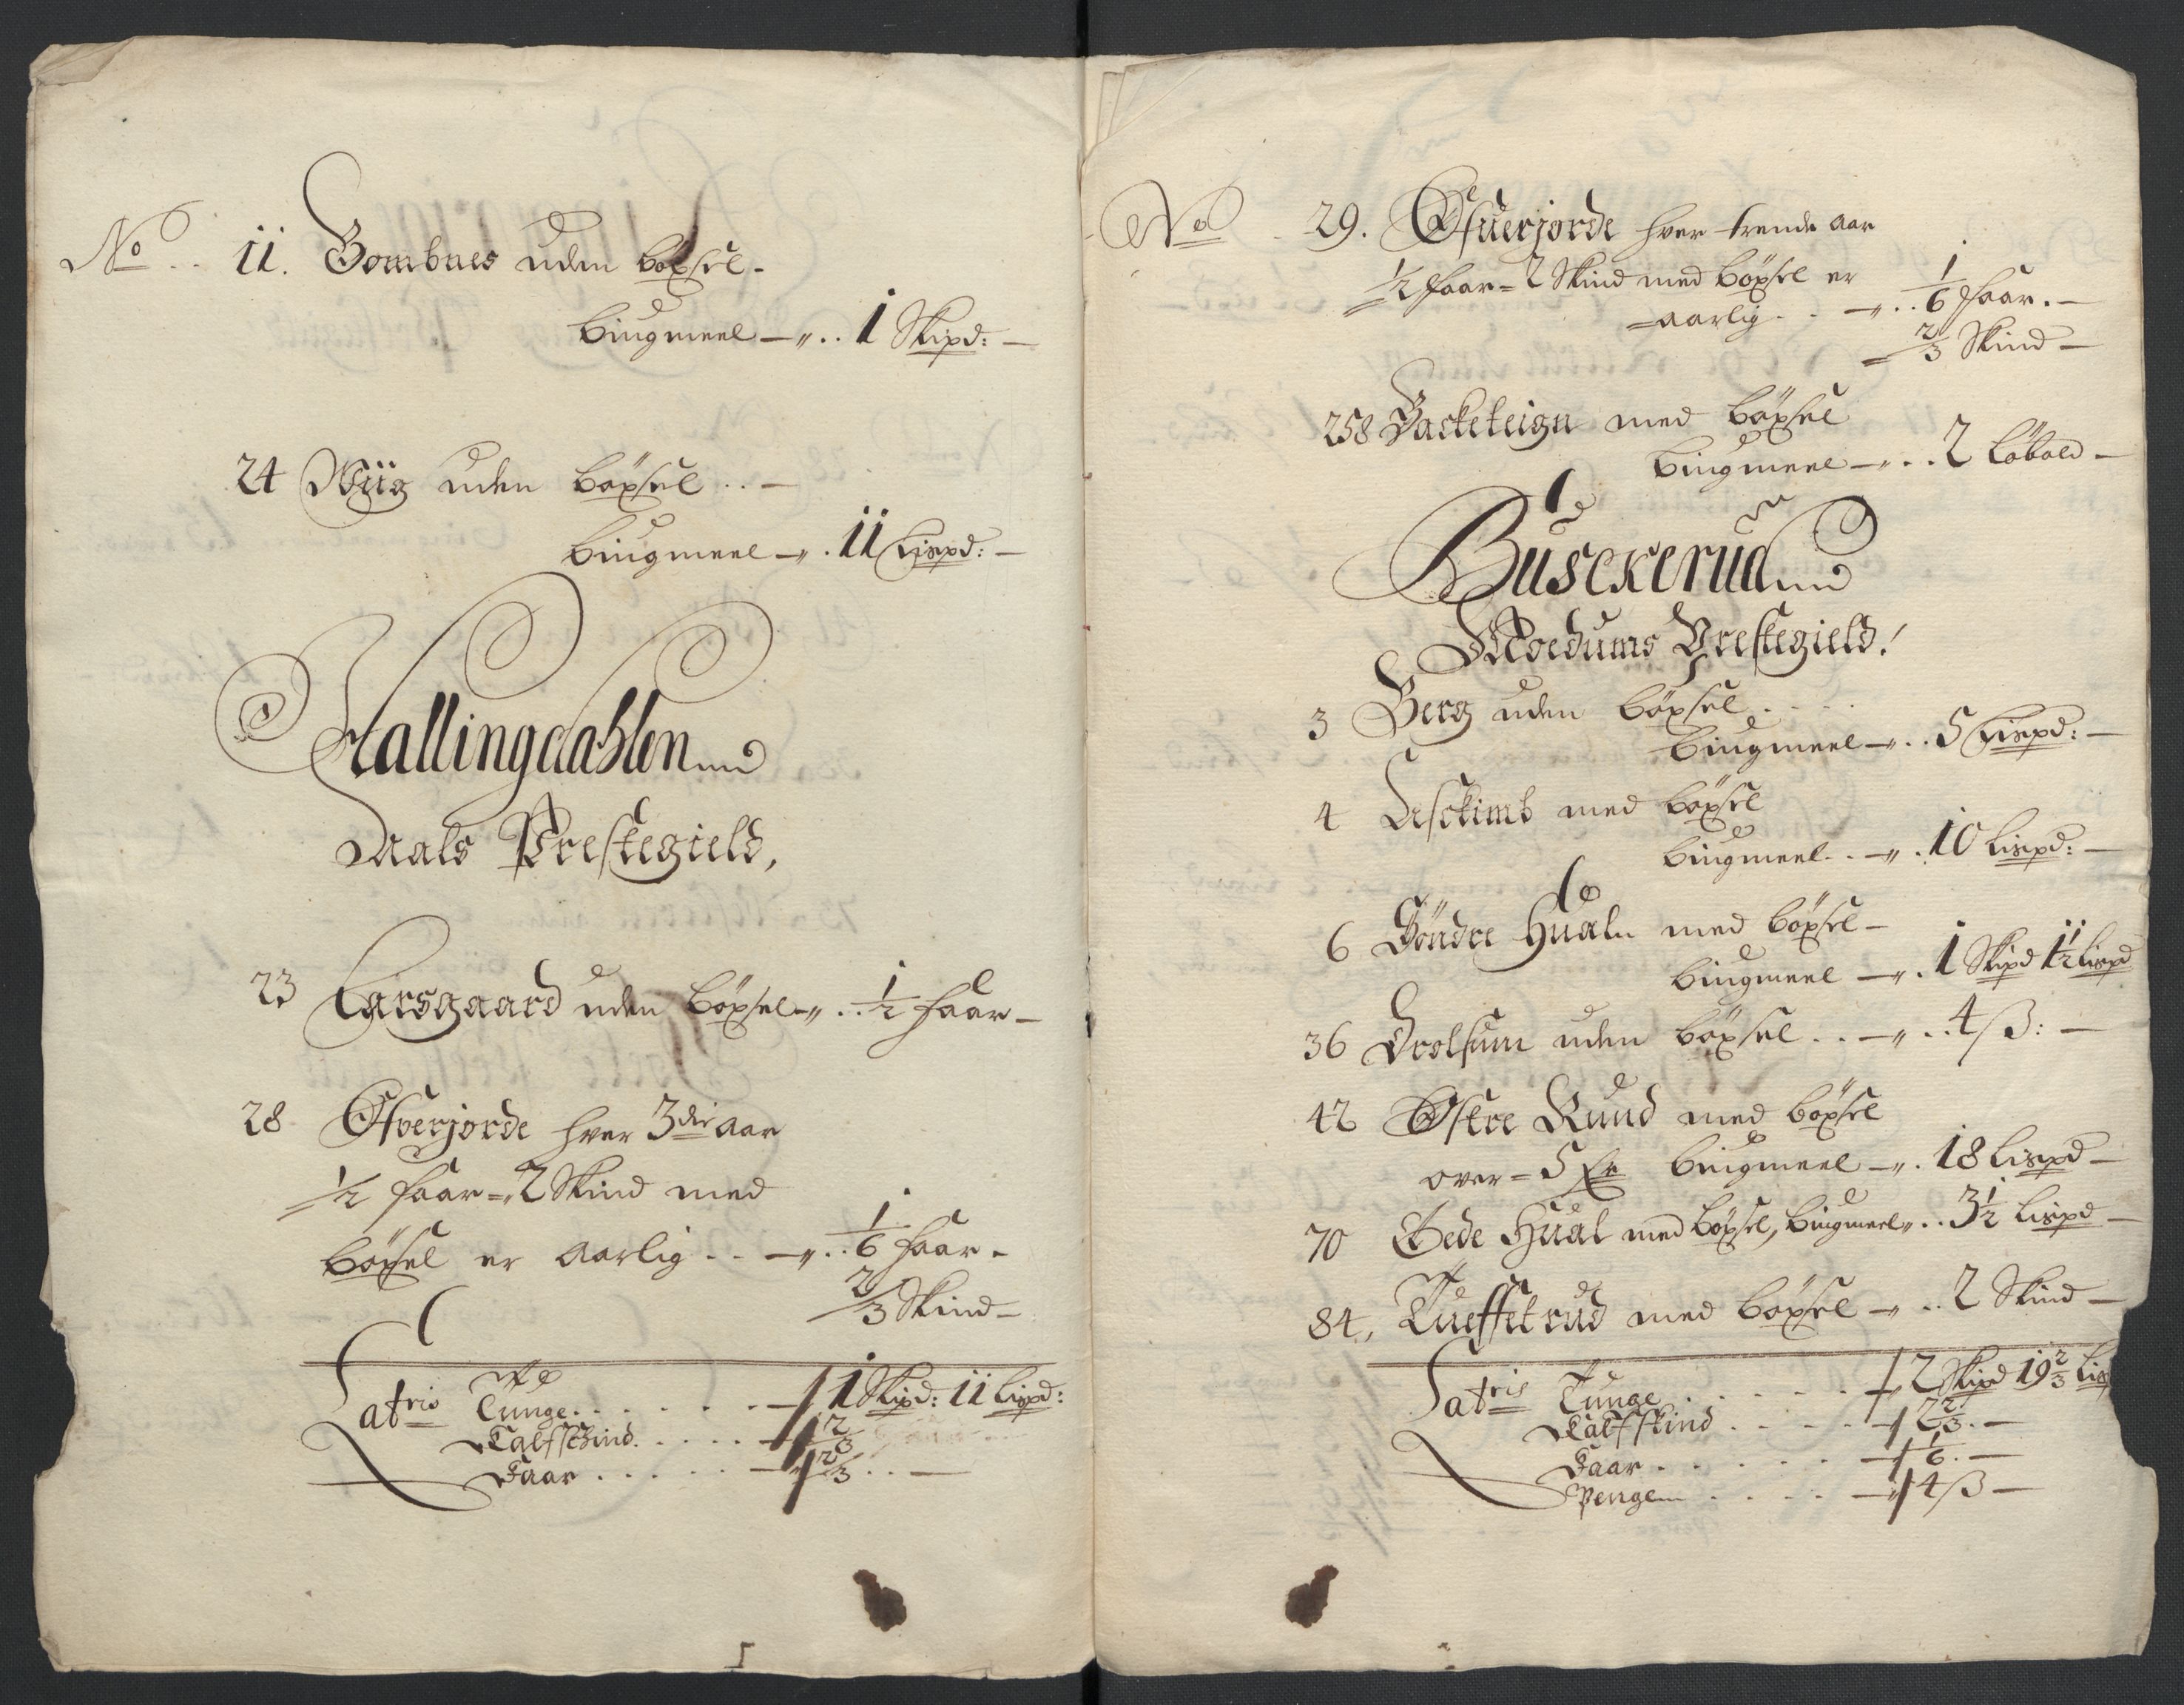 No .. 11. Gombnes uden böxsel -
biugmeel —„.. 1 Skipd: —
24 Wiig uden böxsel .. —
biugmeel —„. 11 Lispd: —
Hallingdahlen
Aals Prestegield,
23 Larsgaard uden böxsel —„.. 1/2 faar —
28 Ofverjorde hver 3die aar
1/2 faar = 2 Skind med
böxsel er aarlig .. —„.. 1/6 faar -
2/3 Skind —
Latris Tunge . . . . . — 1 Skipd: 11 Lispd:
Kalfschind . . . . . — 2/3
Faar . . . . . — 2/3 . . —
No . 29. Ofuerjorde hver trende aar
1/2 faar = 2 Skind med böxsel er
aarlig . . —„.. 1/6 faar. —
2/3 Skind —
258 Backeteign med böxsel
biugmeel —„.. 2 Löbold —
Busckerud
Modums Prestegield!
3 Berg uden böxsel . . . .
biugmeel —„.. 5 Lispd: —
4 Asckimb med böxsel
biugmeel .. —„. 10 Lispd: —
6 Söndre Hualn med böxsel —
biugmeel —„. 1 Skipd 1 1/2 Lispd
36 Drolsum uden böxsel . . —„.. 4 ß: —
42 Östre Rund med böxsel
over = 5 biugmeel —„. 18 Lispd —
70 Hual med böxsel, biugmeel „.. 3 1/2 Lispd —
84, Tueffetrud med böxsel —„.. 2 Skind —
Latris Tunge . . . . . — 2 Skipd 19 2/3 Lis
Kalfskind . . . . — 2 2/3 . —
Faar . . . . . — 1/6 . —
Penge . . . . — 4 ß —